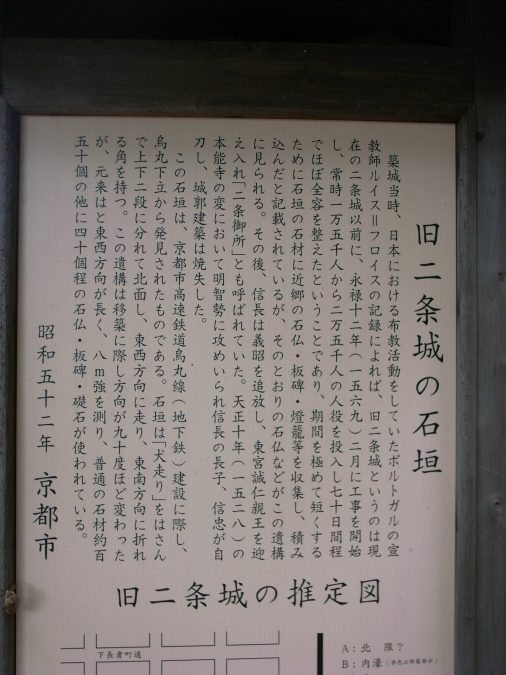 旧二条城の石垣
築城当時、日本における布教活動をしていたポルトガルの宣
教師ルイス＝フロイスの記録によれば、旧二条城というのは現
在の二条城以前に、永禄十二年(一五六九)二月に工事を開始
し、常時一万五千人から二万五千人の人役を投入し七十日間程
でほぼ全容を整えたということであり、期間を極めて短くする
ために石垣の石材に近郷の石仏・板碑・燈籠等を収集し、積み
込んだと記載されているが、そのとおりの石仏などがこの遺構
に見られる。その後、信長は義昭を追放し、東宮誠仁親王を迎
え入れ「二条御所」とも呼ばれていた。天正十年(一五二八)の
本能寺の変において明智勢に攻めいられ信長の長子、信忠が自
刀し、城郭建築は焼失した。
この石垣は、京都市高速鉄道烏丸線(地下鉄)建設に際し、
烏丸下立から発見されたものである。石垣は「犬走り」をはさん
で上下二段に分れて北面し、東西方向に走り、東南方向に折れ
る角を持つ。この遺構は移築に際し方向が九十度ほど変わった
が、元来はと東西方向が長く、八m強を測り、普通の石材約百
五十個の他に四十個程の石仏・板碑・礎石が使われている。
昭和五十二年 京都市
旧二条城の推定図
下長者町通
A:北 限?
B:内濠(赤色は移築部分)